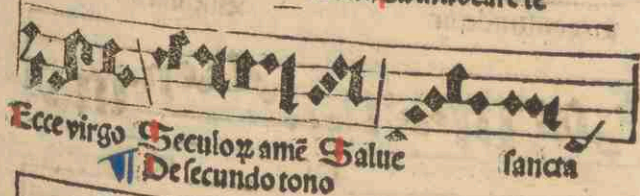 Ecce virgo Seculoꝝ amē Salue sancta
¶ De secundo tono